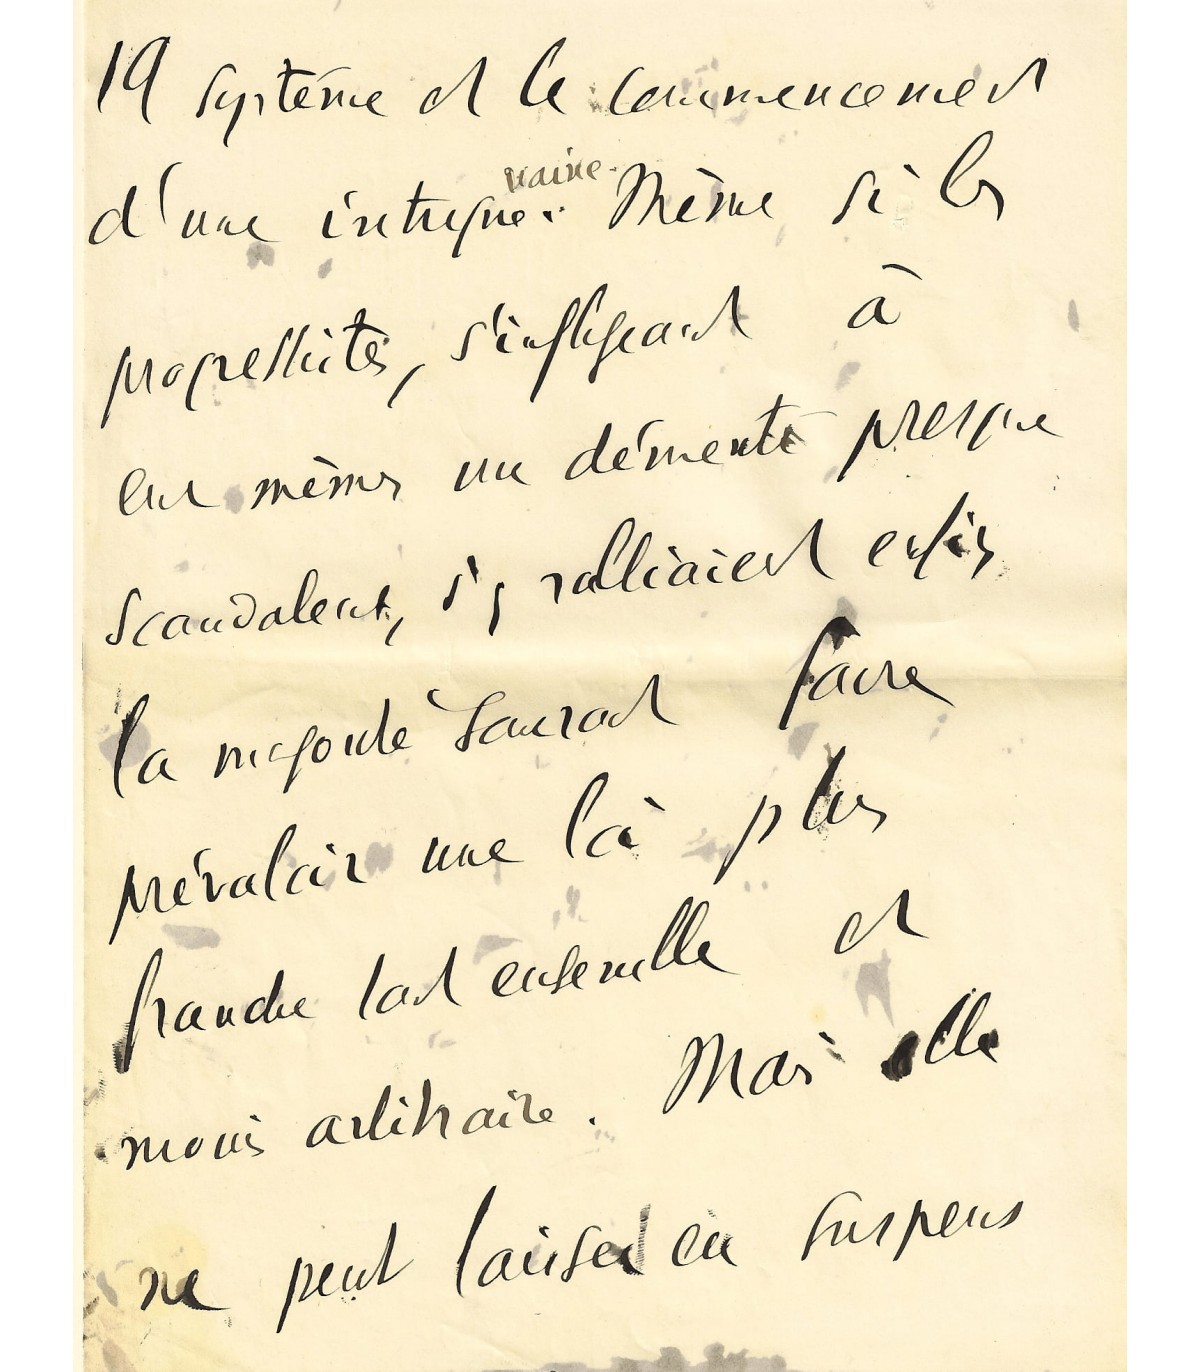 19 système et le commencement
vaine.
d'une intrigue. Même si les
progressistes, s'infligeant à
eux mêmes un démenti presque
scandaleux, s'y ralliaient enfin
la majorité saurait faire
prévaloir une loi plus
franche tout ensemble et
moins arbitraire. Mais elle
ne peut laisser en suspens